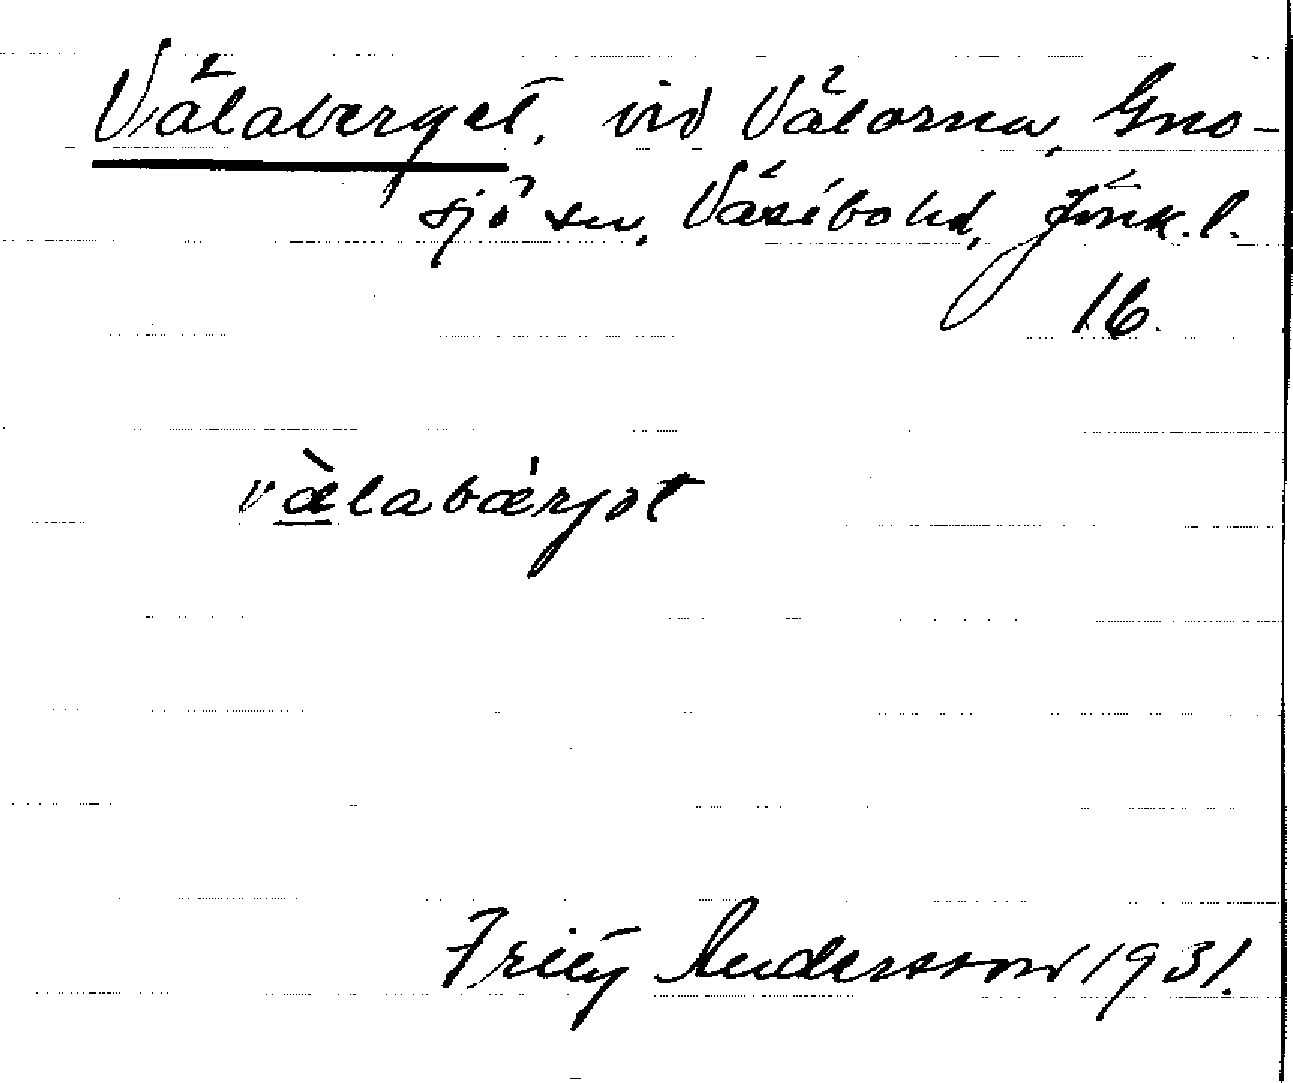 Välaberget, vid Välorna, Gno-
sjö sn, Västbo hd, Jönk. l.
16.
vælabærjət
Fritz Andersson 1931.